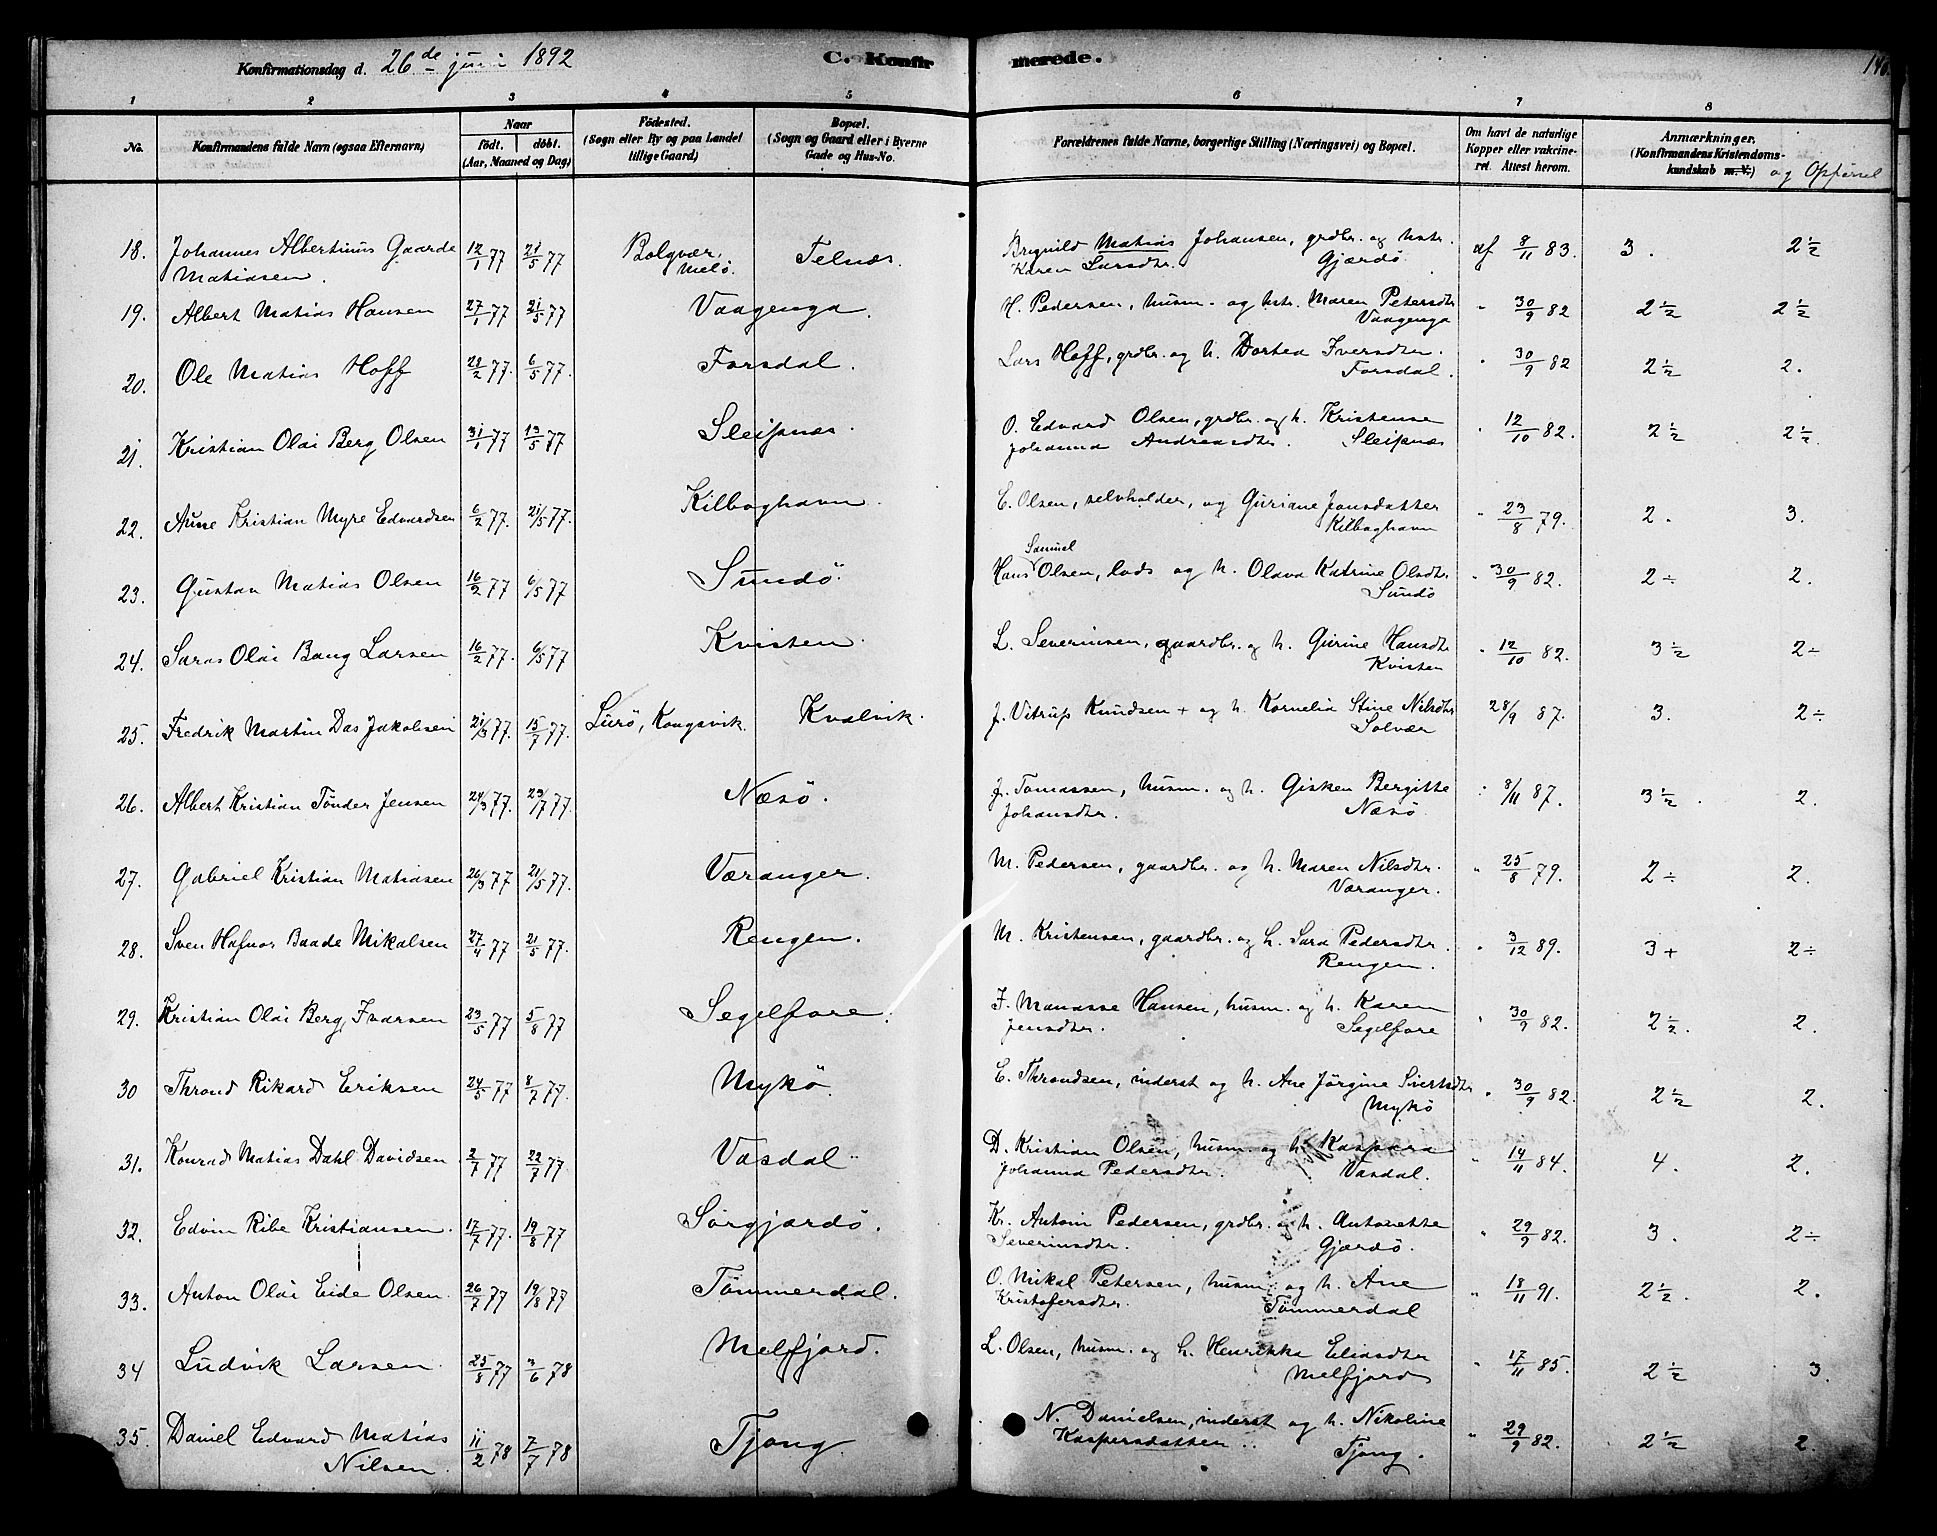 Konfirmationsdag d. 26de juni 1892
C. Konfirmerede.
1 2 3 4 5 6 7 8
No.
Konfirmandens fulde Navn (ogsaa Efternavn)
Naar
født. døbt.
(Aar, Maaned og Dag)
Fødested.
(Sogn eller By og paa Landet tillige Gaard)
Bopæl.
(Sogn og Gaard eller i Byerne Gade og Hus-No.
Forældrenes fulde Navne, borgerlige Stilling (Næringsvei) og Bopæl.
Om havt de naturlige Kopper eller vakcineret. Attest herom.
Anmærkninger.
(Konfirmandens Kristendomskundskab m. V.) og Opførsel
18. Johannes Albertinus Gaarde Matiasen. 12/1 77 21/5 77 Bolgvær, Melø. Telnæs. Brynild Matias Johansen, grdbr. og hstr. Karen Larsdtr. Gjærdø. af 8/11 83. 3. 2 1/2
19. Albert Matias Hansen 27/1 77 21/5 77 Vaagenga. H. Pedersen, husm. og hstr. Maren Petersdtr Vaagenga " 30/9 82 2 1/2 2 1/2
20. Ole Matias Hoff 28/2 77. 6/5 77. Forsdal. Lars Hoff, grdbr. og h. Dortea Iversdtr. Forsdal. " 30/9 82 2 1/2 2.
21. Kristian Olai Berg Olsen 31/1 77 13/5 77 Sleipnæs O. Edvard Olsen, grdbr. og h. Kristense Johanna Andreasdtr. Sleipnæs " 12/10 82. 2 1/2 2 1/2.
22. Aune Kristian Myre Edvardsen 6/2 77. 21/5 77. Kilboghavn. E. Olsen, selvholder, og Guriane Jonsdatter Kilboghavn " 23/8 79. 2. 3.
23. Gustav Matias Olsen 16/2 77 6/5 77 Sundö. Hans Samuel Olsen, lods og h. Olava Katrine Olsdtr Sundö " 30/9 82. 2 ÷ 2.
24. Saras Olai Bang Larsen 16/2 77. 6/5 77 Kvisten. L. Severinsen, gaardbr. og h. Gurine Hansdtr Kvisten " 12/10 82. 3 1/2 2 ÷
25. Fredrik Martin Das Jakobsen 21/3 77. 15/7 77. Lurö, Kongsvik. Kvalvik. J. Vitrup Knudsen + og h. Kornelia Stine Nilsdtr Solvær 28/9 87. 3. 2 ÷
26. Albert Kristian Tönder Jensen 24/3 77. 29/7 77. Næsö. J. Tomassen, husm. og h. Gisken Bergitte Johansdtr. Næsö " 8/11 87. 3 1/2. 2.
27. Gabriel Kristian Matiasen 26/3 77 21/5 77. Væranger. M. Pedersen, gaardbr. og h. Maren Nilsdtr. Væranger. " 25/8 79. 2 ÷ 2.
28. Sven Hafnor Baade Mikalsen 27/4 77 21/5 77. Rengen. M. Kristensen, gaardbr. og h. Sara Pedersdtr. Rengen. " 3/12 89. 3 + 2 ÷
29. Kristian Olai Berg Ivarsen 23/5 77 5/8 77 Segelfore. I. Manasse Hansen, husm. og h. Karen Jensdtr. Segelfore " 30/9 82. 2 1/2. 2.
30 Thrond Rikard Eriksen 24/5 77 8/7 77. Mykö. E. Throndsen, inderst og h. Ane Jörgine Sivertsdtr Mykö " 30/9 82. 2 1/2 2.
31. Konrad Matias Dahl Davidsen 2/7 77 22/7 77 Vasdal D. Kristian Olsen, husm. og h. Kaspara Johanna Pedersdtr. Vasdal. " 14/11 84. 4. 2.
32. Edvin Ribe Kristiansen. 17/7 77. 19/8 77 Sörgjærdö. Kr. Antoin Pedersen, grdbr. og h. Antonette Severinsdtr. Gjærdö. " 29/9 82. 3. 2 ÷
33. Anton Olai Eide Olsen. 26/7 77 19/8 77 Tömmerdal. O. Mikal Petersen, husm. og h. Ane Kristofersdtr. Tömmerdal " 18/11 91. 2 1/2. 2.
34 Ludvik Larsen. 25/8 77 /6 78 Melfjord. L. Olsen, husm. og h. Henrikka Eliasdtr Melfjord " 17/11 85. 2 1/2 3.
35. Daniel Edvard Matias Nilsen. 11/2 78 7/7 78 Tjong. N. Danielsen, inderst og h. Nikoline Kaspersdatter. Tjong. " 29/9 82. 2 1/2 2.